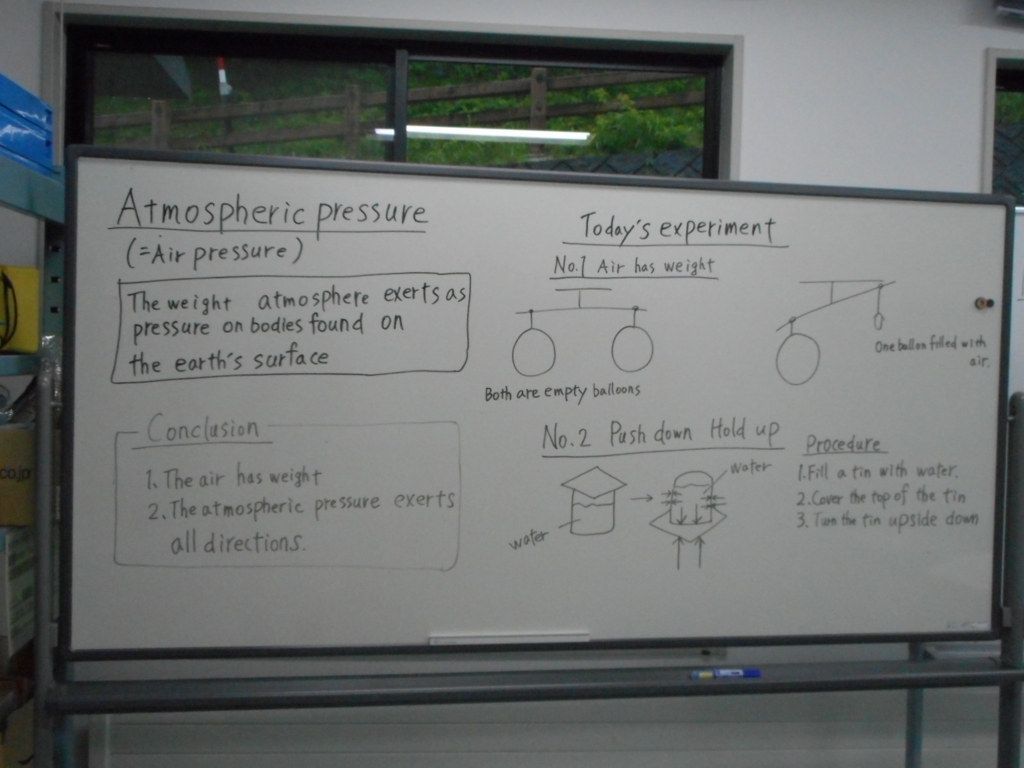 Atmospheric pressure
(=Air pressure)
The weight atmosphere exerts as
pressure on bodies found on
the earth's surface
Conclusion
1. The air has weight
2. The atmospheric pressure exerts
all directions.
Today's experiment
No.1 Air has weight
Both are empty balloons
One ballon filled with
air.
No.2 Push down Hold up
water
water
Procedure
1. Fill a tin with water.
2. Cover the top of the tin
3. Turn the tin upside down
co.jp